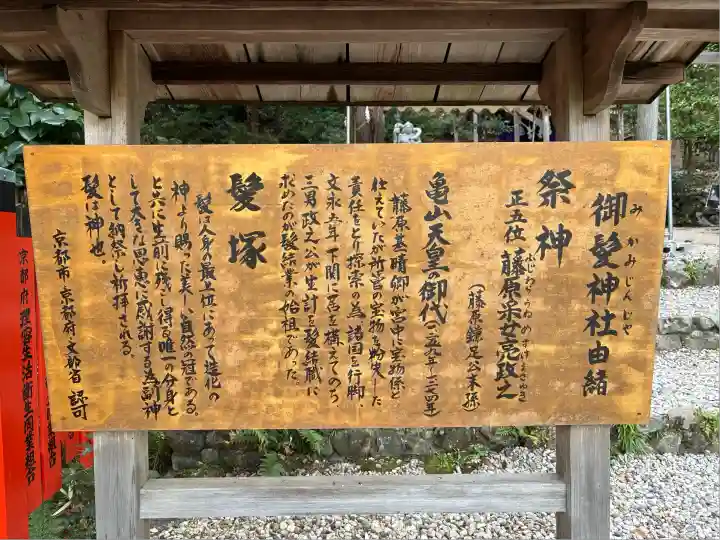 御髪神社由緒
みかみじんじや
祭神
正五位 藤原采女亮政之
ふじわらうねめすけまさゆき
(藤原鎌足公末孫)
亀山天皇の御代(一二五九年~一二七四年)
藤原基晴卿が宮中に宝物係と
仕えていたが所管の宝物を紛失した
責任をとり探索の為、諸国を行脚、
文永五年下関に居を構えてのち、
三男政之公が生計を髪結職に
求めたのが髪結業の始祖であった。
髪塚
髪は人身の最上位にあって造化の
神より賜った美しい自然の冠である。
と共に生前に残し得る唯一の分身と
して大きな思恵に感謝する為副神
として納祭し祈拝される。
髪は神也。
京都市・京都府・文部省 認可
京都府理容生活衛生同業組合